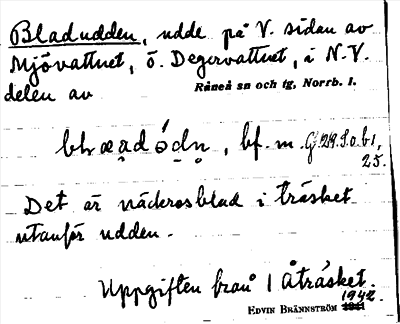 Bladudden, udde på V. sidan av
Mjövattnet, ö. Degervattnet, i N.V.
delen av Råneå sn och tg, Norrb. l.
bḷæ̣adódṇ, bf. m. G 29 S.o.b1,
25.
Det är näckrosblad i träsket
utanför udden.
Uppgiften från 1 Åträsket.
1942.
EDVIN BRÄNNSTRÖM 1941